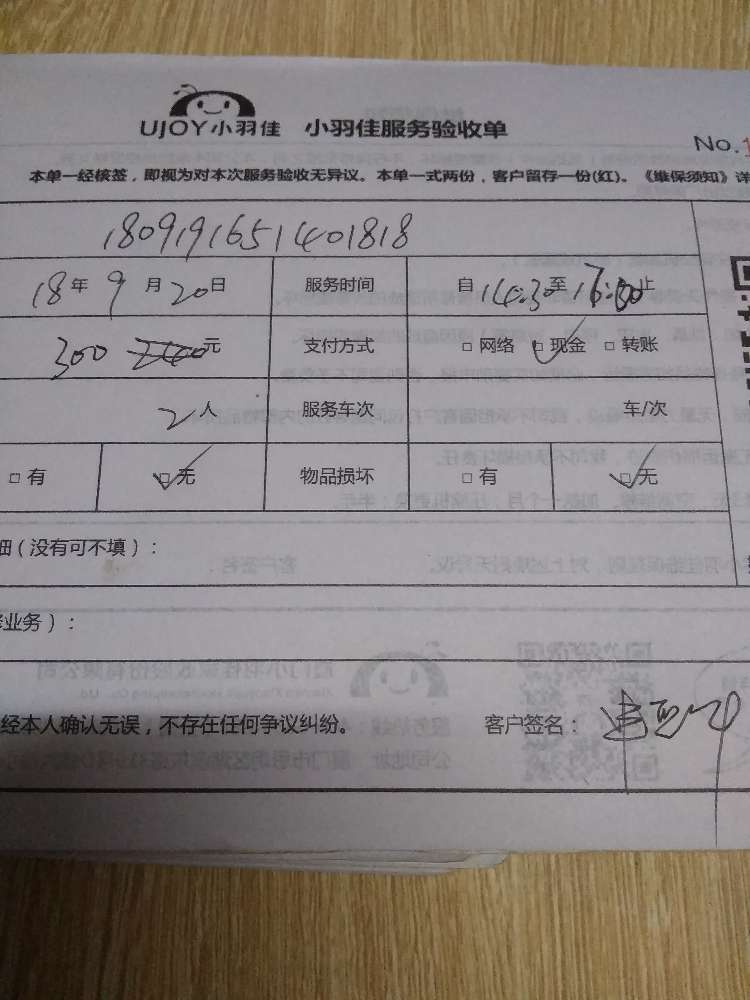 UJOY小羽佳 小羽佳服务验收单
No.1
本单一经核签，即视为对本次服务验收无异议。本单一式两份，客户留存一份(红)。《维保须知》详
1809191651401818
18年9月20日 服务时间 自14:30至17:00止
300 元 支付方式 □网络 ☑现金 □转账
2人 服务车次 车/次
□有 ☑无 物品损坏 □有 ☑无
细（没有可不填）：
业务）：
经本人确认无误，不存在任何争议纠纷。 客户签名：